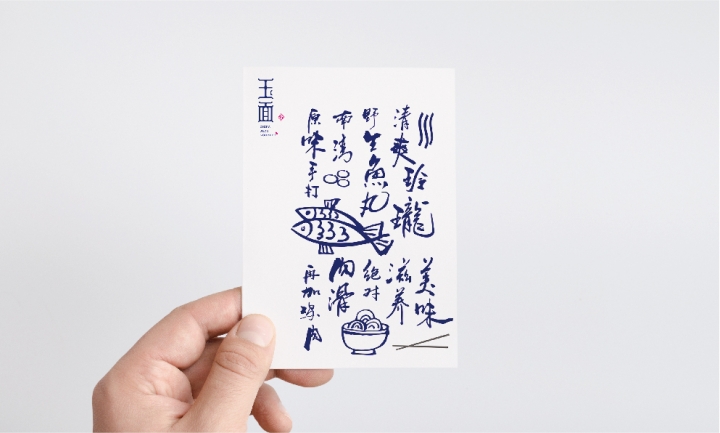 玉面
清爽玲瓏
野生魚丸
南
原味手打
美味
滋养
绝对
肉滑
再加
肉